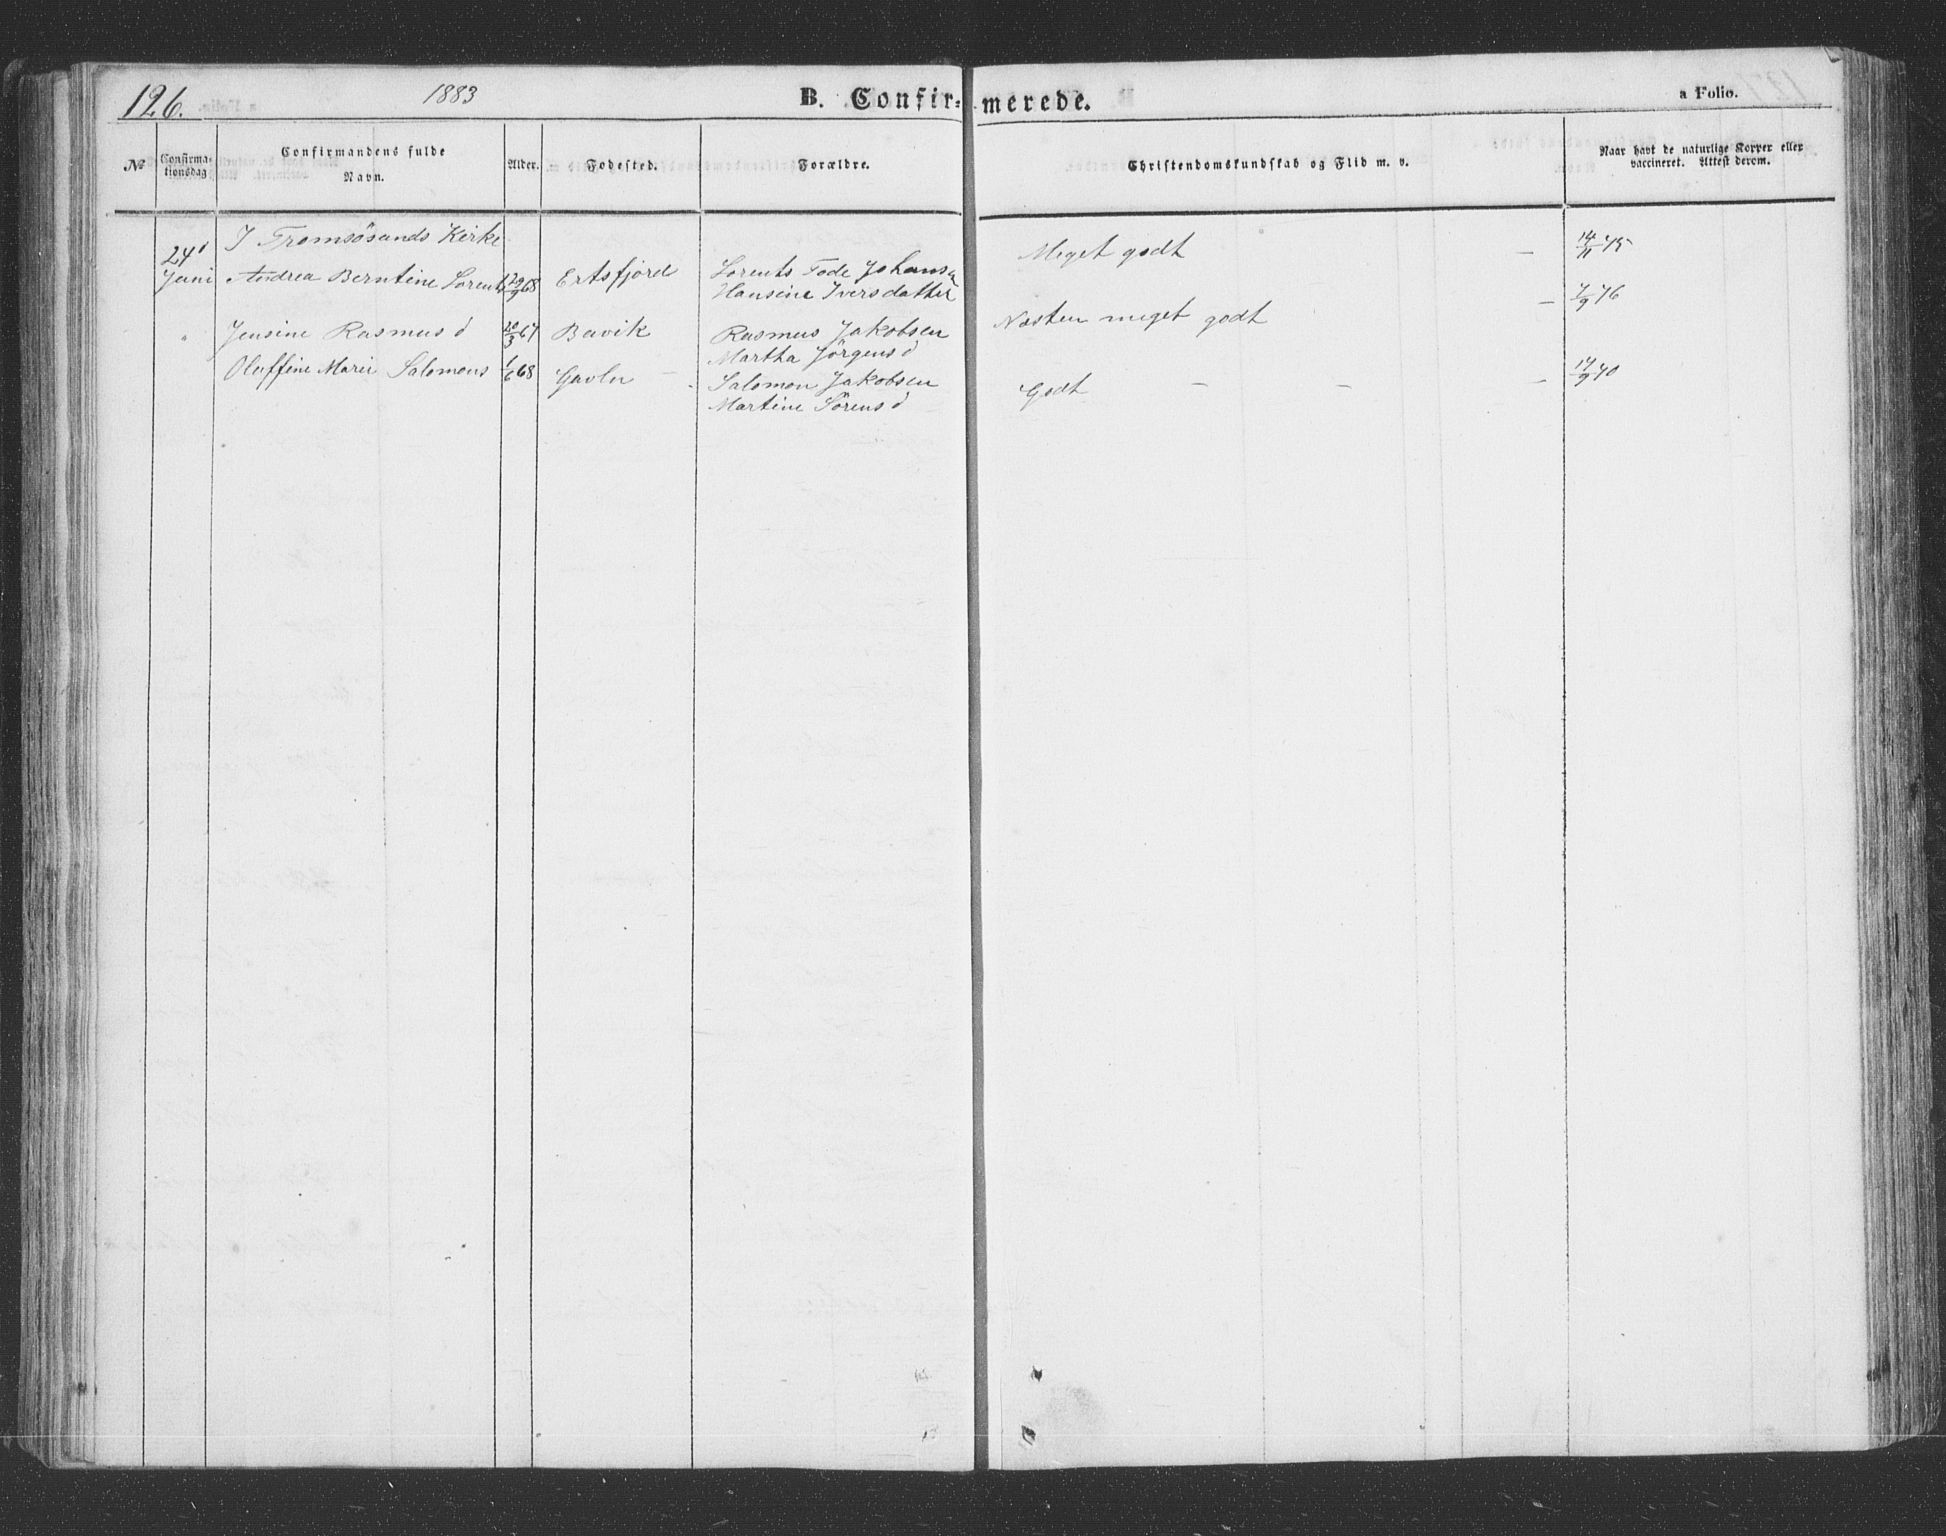 126. 1883 B. Confirmerede. a Folio.
No Confirmationsdag Confirmandens fulde Navn. Alder. Fodested. Forældre. Christendomskundskab og Flid m. v. Naar havt de naturlige Kopper eller vaccineret. Attest derom.
I Tromsösunds Kirke
24d Juni Andrea Berntine Lorents 68 Ertsfjord Lorents Tode Johans Meget godt — 14/11 75
Hansine Iversdatter
" Jensine Rasmusd 20/3 67 Bavik Rasmus Jakobsen Næsten meget godt — 7/9 76
Martha Jörgensd
Oluffine Marie Salomons 1/6 68 Gavln Salomon Jakobsen Godt — — — 17/9 70
Martine Sörensd